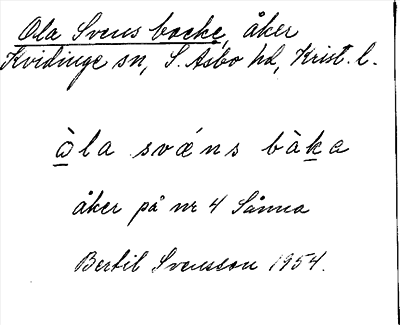 Ola Svens backe, åker
Kvidinge sn, S. Åsbo hd, Krist. l.
ὼla svǽns bàka
åker på nr 4 Sånna
Bertil Svensson 1954.